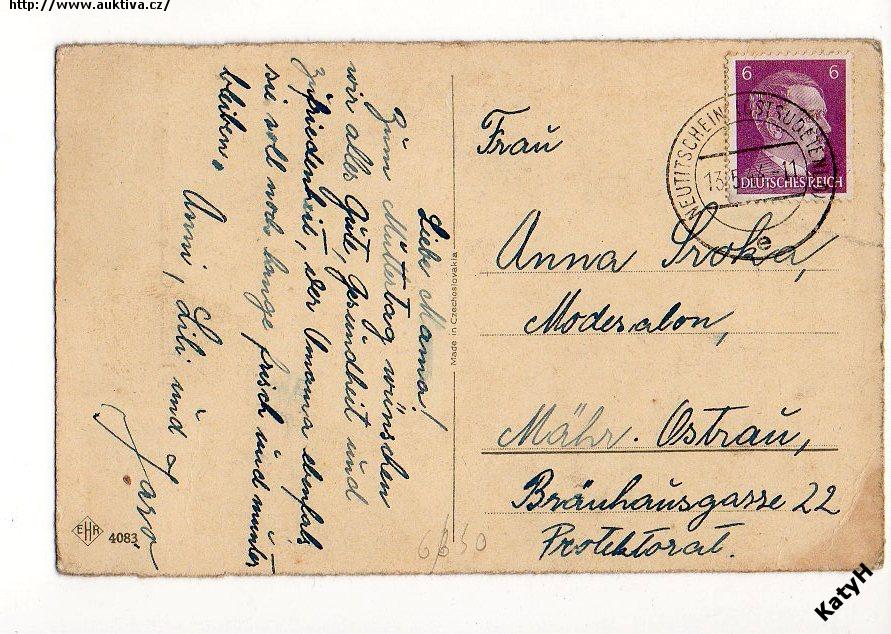 http://www.auktiva.cz/
Liebe Mama!
Zum Muttertag wünschen
wir alles Gute, Gesundheit und
Zufriedenheit, der Omama ebenfals
sie soll noch lange frisch und munter
bleiben.
Anni, Lili und
Jaro
Made in Czechoslovakia
EHR
4083
6
6
DEUTSCHES REICH
NEUTITSCHEIN
13.5.43.-11
e
Frau
Anna Sroka,
Modesalon,
Mähr. Ostrau,
Bräuhausgasse 22
Protektorat.
KatyH